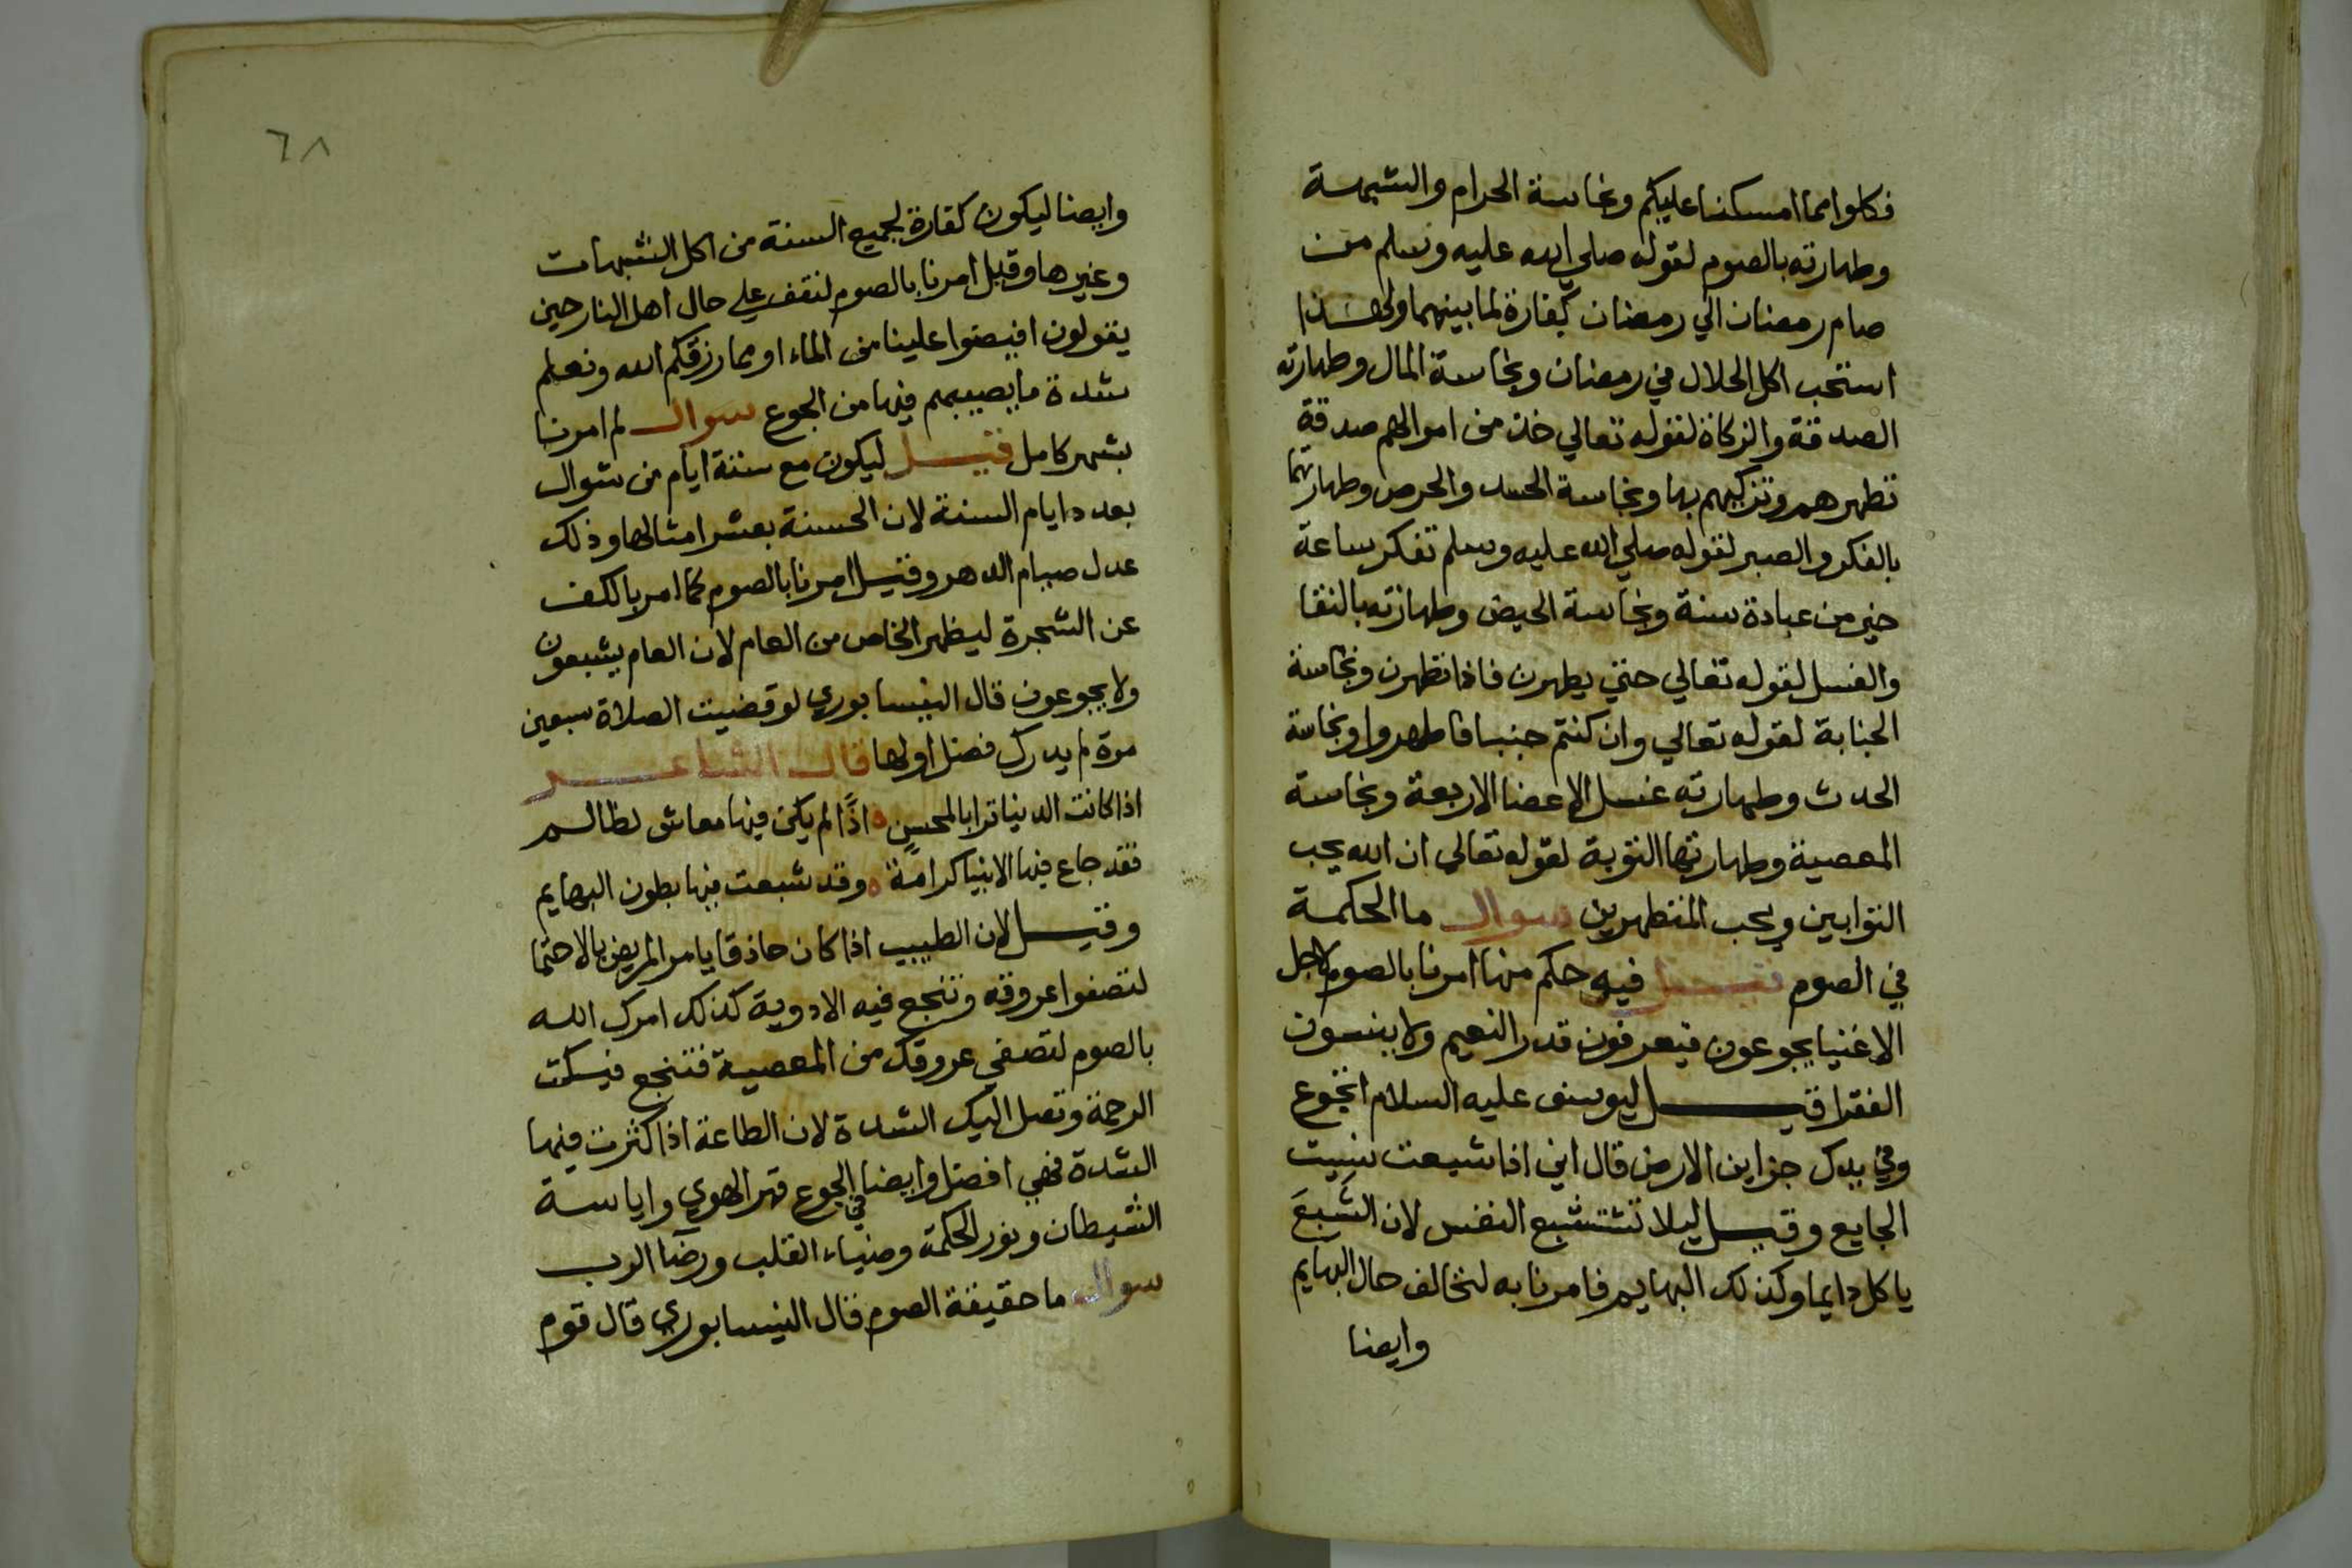 فكلوا مما امسكنا عليكم ونجاسة الحرام والشبهة
وطهارته بالصوم لقوله صلي الله عليه وسلم من
صام رمضان الي رمضان كفارة لما بينهما ولهذا
استحب اكل الحلال في رمضان ونجاسة المال وطهارته
الصدقة والزكاة لقوله تعالي خذ من اموالهم صدقة
تطهرهم وتزكيهم بها ونجاسة الحسد والحرص وطهارتهما
بالفكر والصبر لقوله صلي الله عليه وسلم تفكر ساعة
خير من عبادة سنة ونجاسة الحيض وطهارته بالنقا
والغسل لقوله تعالي حتي يطهرن فاذا تطهرن ونجاسة
الجنابة لقوله تعالي وان كنتم جنبا فاطهروا ونجاسة
الحدث وطهارته غسل الاعضا الاربعة ونجاسة
المعصية وطهارتها التوبة لقوله تعالي ان الله يحب
التوابين ويحب المتطهرين سوال ما الحكمة
في الصوم قيل فيه حكم منها امرنا بالصوم لاجل
الاغنيا يجوعون فيعرفون قدر النعيم ولا ينسون
الفقرا قيل ليوسف عليه السلام اتجوع
وفي يدك خزاين الارض قال اني اذا شبعت نسيت
الجايع وقيل ليلا تشتبع النفس لان الشَبعَ
ياكل دايما وكذلك البهايم فامرنا به لتخالف حال البهايم
وايضا
٦٨
وايضا ليكون كفارة لجميع السنة من اكل الشبهات
وغيرها وقيل امرنا بالصوم لنقف علي حال اهل النار حين
يقولون افيضوا علينا من الماء او مما رزقكم الله ونعلم
شدة ما يصيبهم فيها من الجوع سوال لم امرنا
بشهر كامل قيل ليكون مع ستة ايام من شوال
بعدد ايام السنة لان الحسنة بعشر امثالها وذلك
عدل صيام الدهر وقيل امرنا بالصوم كما امر بالكف
عن الشجرة ليظهر الخاص من العام لان العام يشبعون
ولا يجوعون قال النيسابوري لو قضيت الصلاة سبعين
مرة لم يدرك فضل اولها قال الشاعر
اذا كانت الدنيا ترابا لمحسنٍ ه اذًا لم يكن فيها معاش لظالم
فقد جاع فيها الانبيا كرامة ه وقد شبعت فيها بطون البهايم
وقيل لان الطبيب اذا كان حاذقا يامر المريض بالاحتما
لتصفوا عروقه وتنجع فيه الادوية كذلك امرك الله
بالصوم لتصفي عروقك من المعصية فتنجع فيسكت
الرحمة وتصل اليك الشدة لان الطاعة اذا كثرت فيها
الشدة فهي افضل وايضا في الجوع قهر الهوي واياسة
الشيطان ونور الحكمة وضياء القلب ورضا الرب
سوال ما حقيقة الصوم قال النيسابوري قال قوم